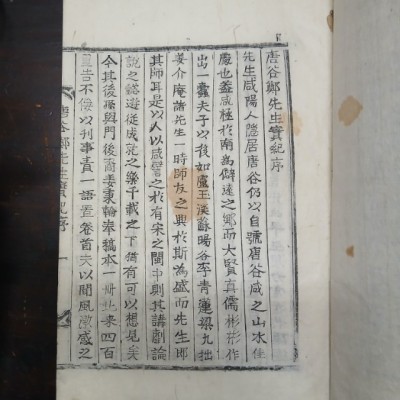 唐谷鄭先生實紀序
先生咸陽人隱居唐谷仍以自號唐谷咸之山水佳
處也盖咸極於南為僻遠之鄉而大賢真儒彬彬作
出一蠹夫子以後如盧玉溪蘇暘谷李青蓮梁九拙
姜介庵諸先生一時師友之興於斯為盛而先生卽
其師耳是以人以咸譬之於有宋之閩中則其講劇論
說之緖遊從成就之樂千載之下猶有可以想見矣
今其後孫與門後裔姜秉輪奉稿本一冊北來四百
里告不侫以刊事責一語置卷首夫以聞風激感之
唐谷鄭先生實紀序 一